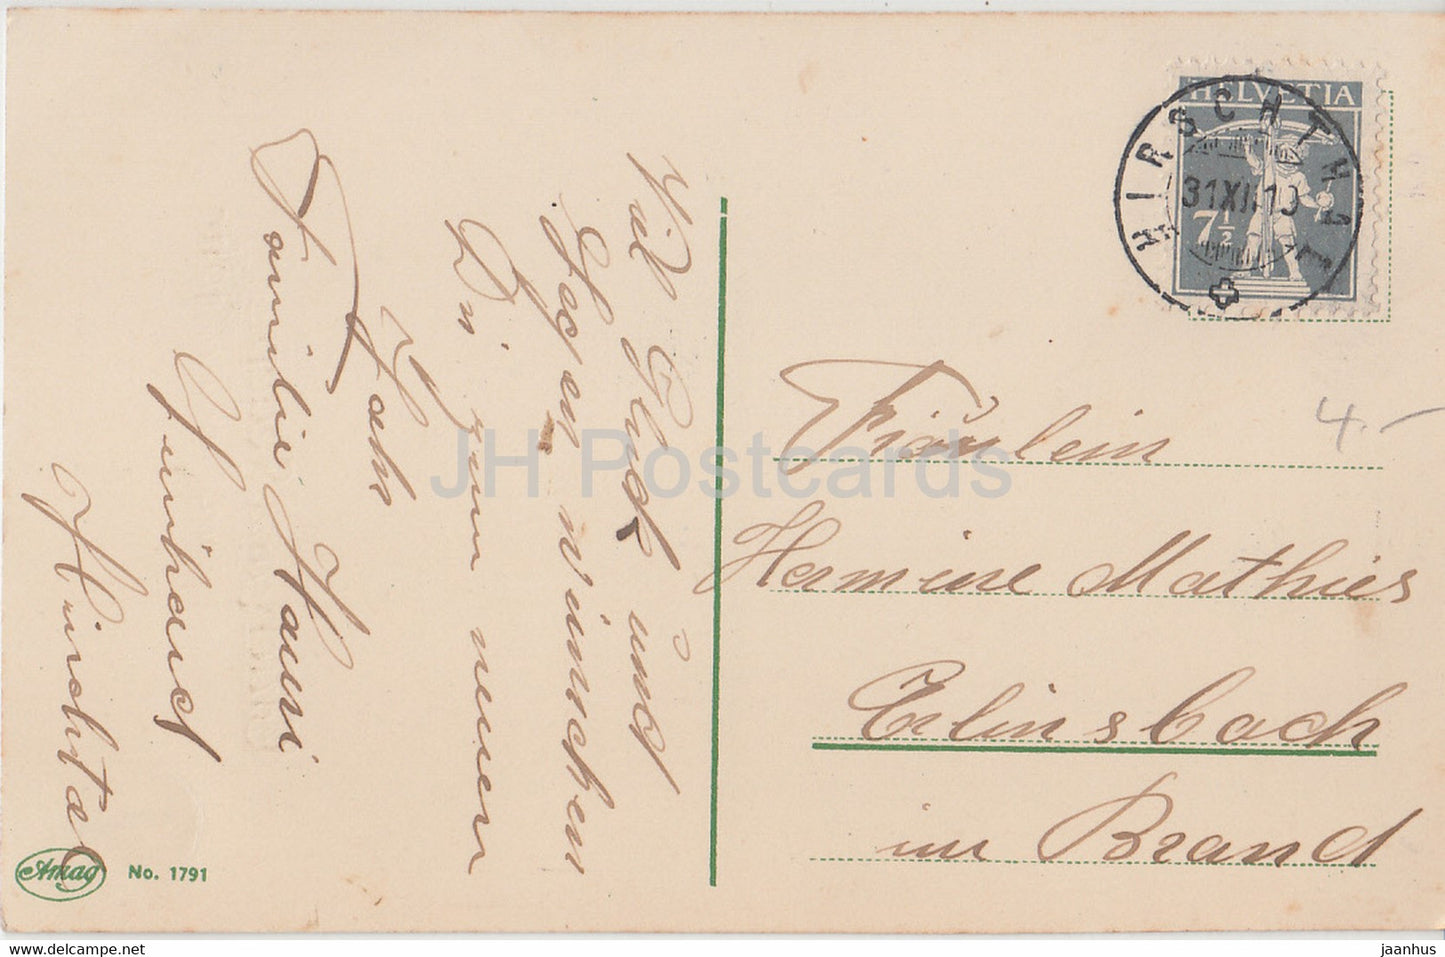 HELVETIA
7½
HIRSCHTHAL
31 XII 19
Viel Glück und
Segen wünschen
Dir zum neuen
Jahr
Familie Hauri
Hirchtal
Fräulein
Hermine Mathies
Erlinsbach
im Brand
4.-
Amag No. 1791
JH Postcards
www.delcampe.net
jaanhus